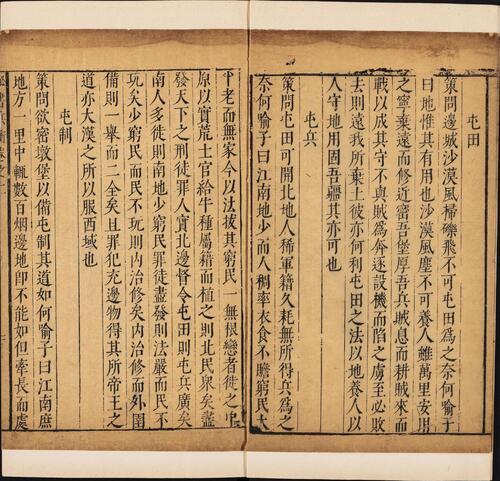 屯田
策問邊城沙漠風掃礫飛不可屯田為之奈何喻子
曰地惟其有用也沙漠風塵不可養人雖萬里安用
之寧棄遠而修近密吾堡厚吾兵賊息而耕賊來而
戰以成其守不與賊為奔逐設機而陷之虜至必敗
去則遠我所棄土彼亦何利屯田之法以地養人以
人守地用固吾疆其亦可也
屯兵
策問屯田可開北地人稀軍籍久耗無所得兵為之
奈何喻子曰江南地少而人稠率衣食不贍窮民大
半老而無家今以法拔其窮民一無根戀者徙之中
原以實荒土官給牛種屬籍而植之則北民衆矣盡
發天下之刑徒罪人實北邊督令屯田則屯兵廣矣
南人多徙則南地少窮民罪徒盡發則法嚴而民不
玩矣少窮民而民不玩則內治修矣內治修而外圉
備則一舉而二全矣且罪犯充邊物得其所帝王之
道亦大漢之所以服西域也
屯制
策問欲密墩堡以備屯制其道如何喻子曰江南庶
地方一里中輒數百烟邊地卽不能如但牽長而處